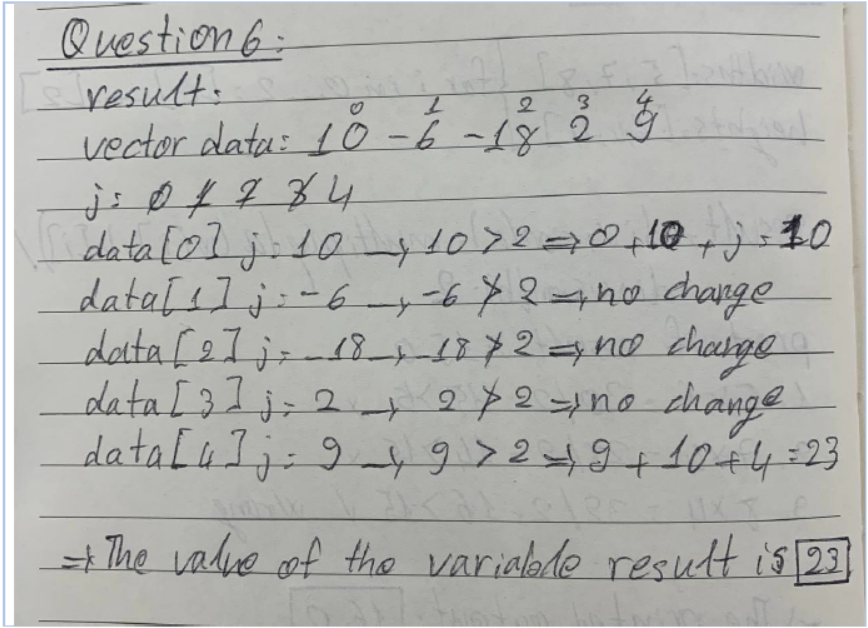 Question 6:
result:
0 1 2 3 4
vector data: 10 -6 -18 2 9
j: 0 1 2 3 4
data[0] j: 10 → 10 > 2 ⇒ 0 + 10 + j = 10
data[1] j: -6 → -6 ≯ 2 ⇒ no change
data[2] j: -18 → -18 ≯ 2 ⇒ no change
data[3] j: 2 → 2 ≯ 2 ⇒ no change
data[4] j: 9 → 9 > 2 ⇒ 9 + 10 + 4 = 23
⇒ The value of the variable result is 23